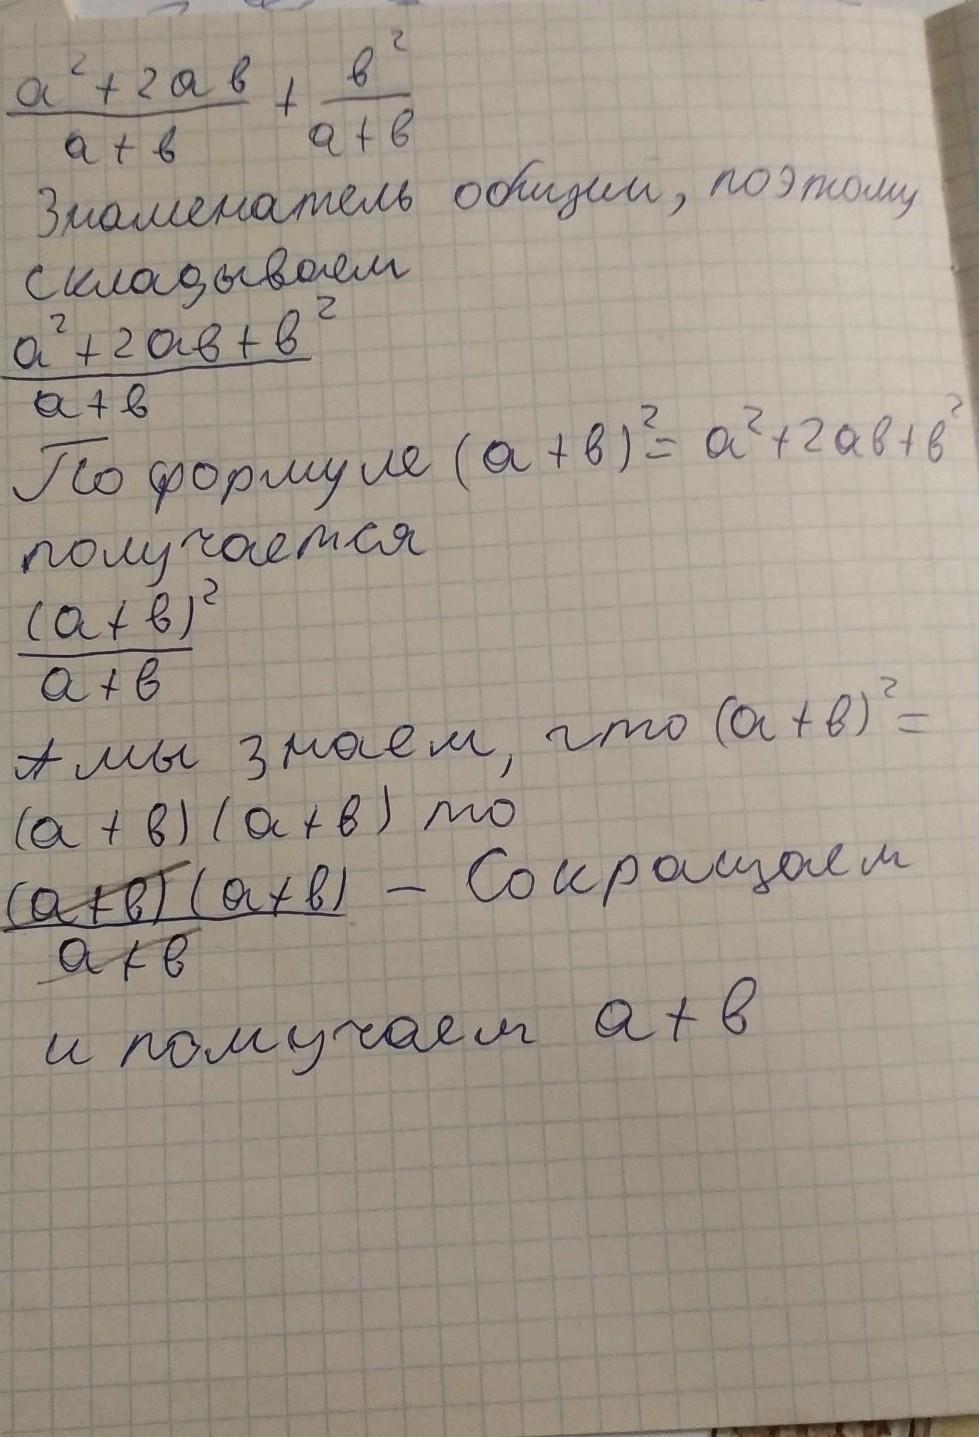 (a² + 2ab)/(a + b) + b²/(a + b)
Знаменатель общий, поэтому
складываем
(a² + 2ab + b²)/(a + b)
По формуле (a + b)² = a² + 2ab + b²
получается
(a + b)²/(a + b)
А мы знаем, что (a + b)² =
(a + b)(a + b) то
(a + b)(a + b)/(a + b) – Сокращаем
и получаем a + b